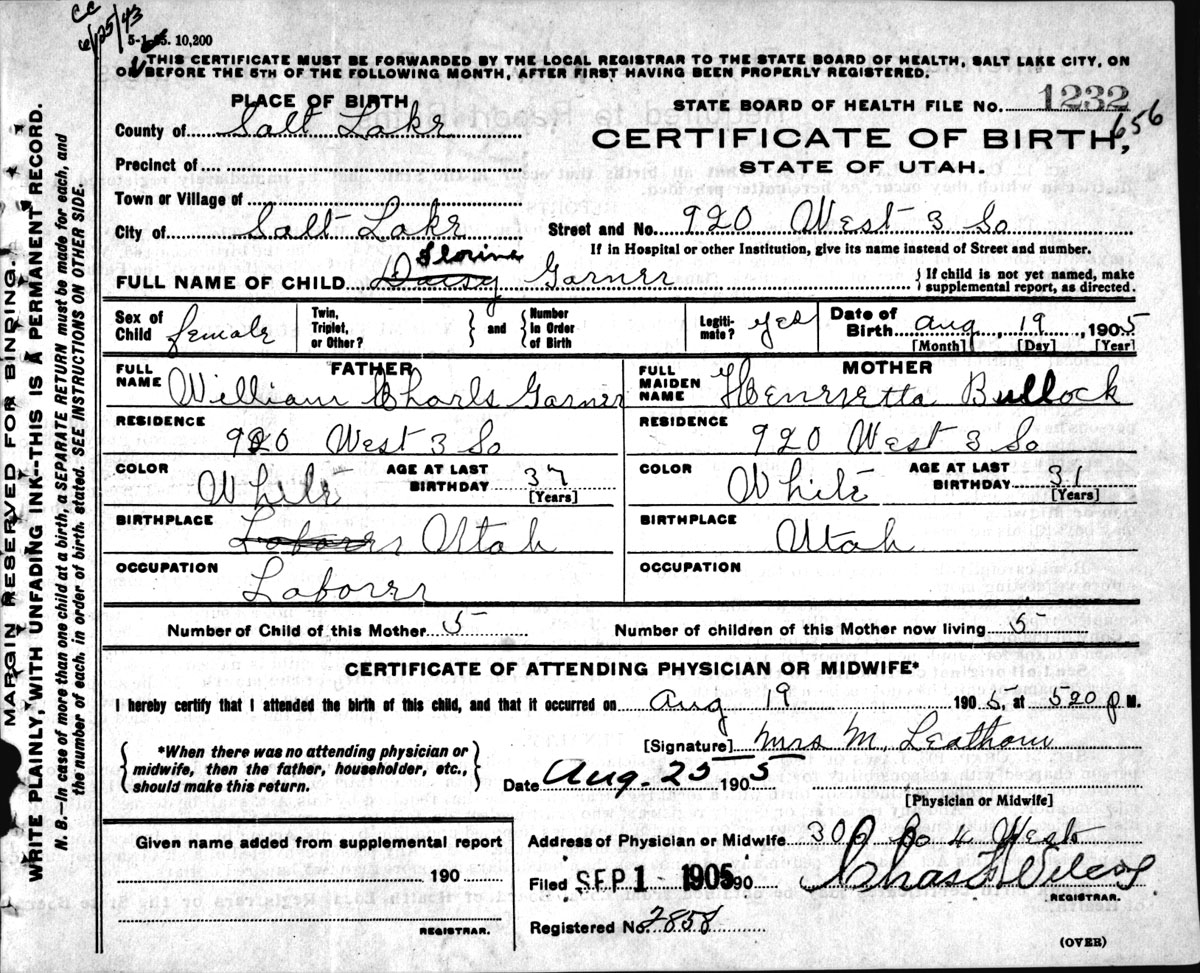 CC
6/25/43
5-1-05. 10,200
THIS CERTIFICATE MUST BE FORWARDED BY THE LOCAL REGISTRAR TO THE STATE BOARD OF HEALTH, SALT LAKE CITY, ON
OR BEFORE THE 5TH OF THE FOLLOWING MONTH, AFTER FIRST HAVING BEEN PROPERLY REGISTERED.
PLACE OF BIRTH
STATE BOARD OF HEALTH FILE NO. 1232
656
County of Salt Lake
CERTIFICATE OF BIRTH,
STATE OF UTAH.
Precinct of
Town or Village of
City of Salt Lake
Street and No. 920 West 3 So
If in Hospital or other Institution, give its name instead of Street and number.
Florine
FULL NAME OF CHILD Daisy Garner
{ If child is not yet named, make
supplemental report, as directed.
Sex of Child female
Twin, Triplet, or Other? } and { Number In Order of Birth
Legiti-mate? yes
Date of Birth Aug, 19, 1905
[Month] [Day] [Year]
FATHER
FULL NAME William Charls Garner
RESIDENCE
920 West 3 So
COLOR White AGE AT LAST BIRTHDAY 37
[Years]
BIRTHPLACE
Laborer Utah
OCCUPATION
Laborer
MOTHER
FULL MAIDEN NAME Henrietta Bullock
RESIDENCE
920 West 3 So
COLOR White AGE AT LAST BIRTHDAY 31
[Years]
BIRTHPLACE
Utah
OCCUPATION
Number of Child of this Mother 5
Number of children of this Mother now living 5
CERTIFICATE OF ATTENDING PHYSICIAN OR MIDWIFE*
I hereby certify that I attended the birth of this child, and that it occurred on Aug 19 1905, at 520 p M.
{ *When there was no attending physician or
midwife, then the father, householder, etc.,
should make this return. }
[Signature] Mrs M. Leatham
Date Aug. 25 1905
[Physician or Midwife]
Given name added from supplemental report
190
REGISTRAR.
Address of Physician or Midwife 300 So 4 West
Filed SEP 1 - 1905 190 Chas Wilcox
REGISTRAR.
Registered No. 2858
(OVER)
MARGIN RESERVED FOR BINDING.
WRITE PLAINLY, WITH UNFADING INK--THIS IS A PERMANENT RECORD.
N. B.—In case of more than one child at a birth, a SEPARATE RETURN must be made for each, and
the number of each, in order of birth, stated. SEE INSTRUCTIONS ON OTHER SIDE.